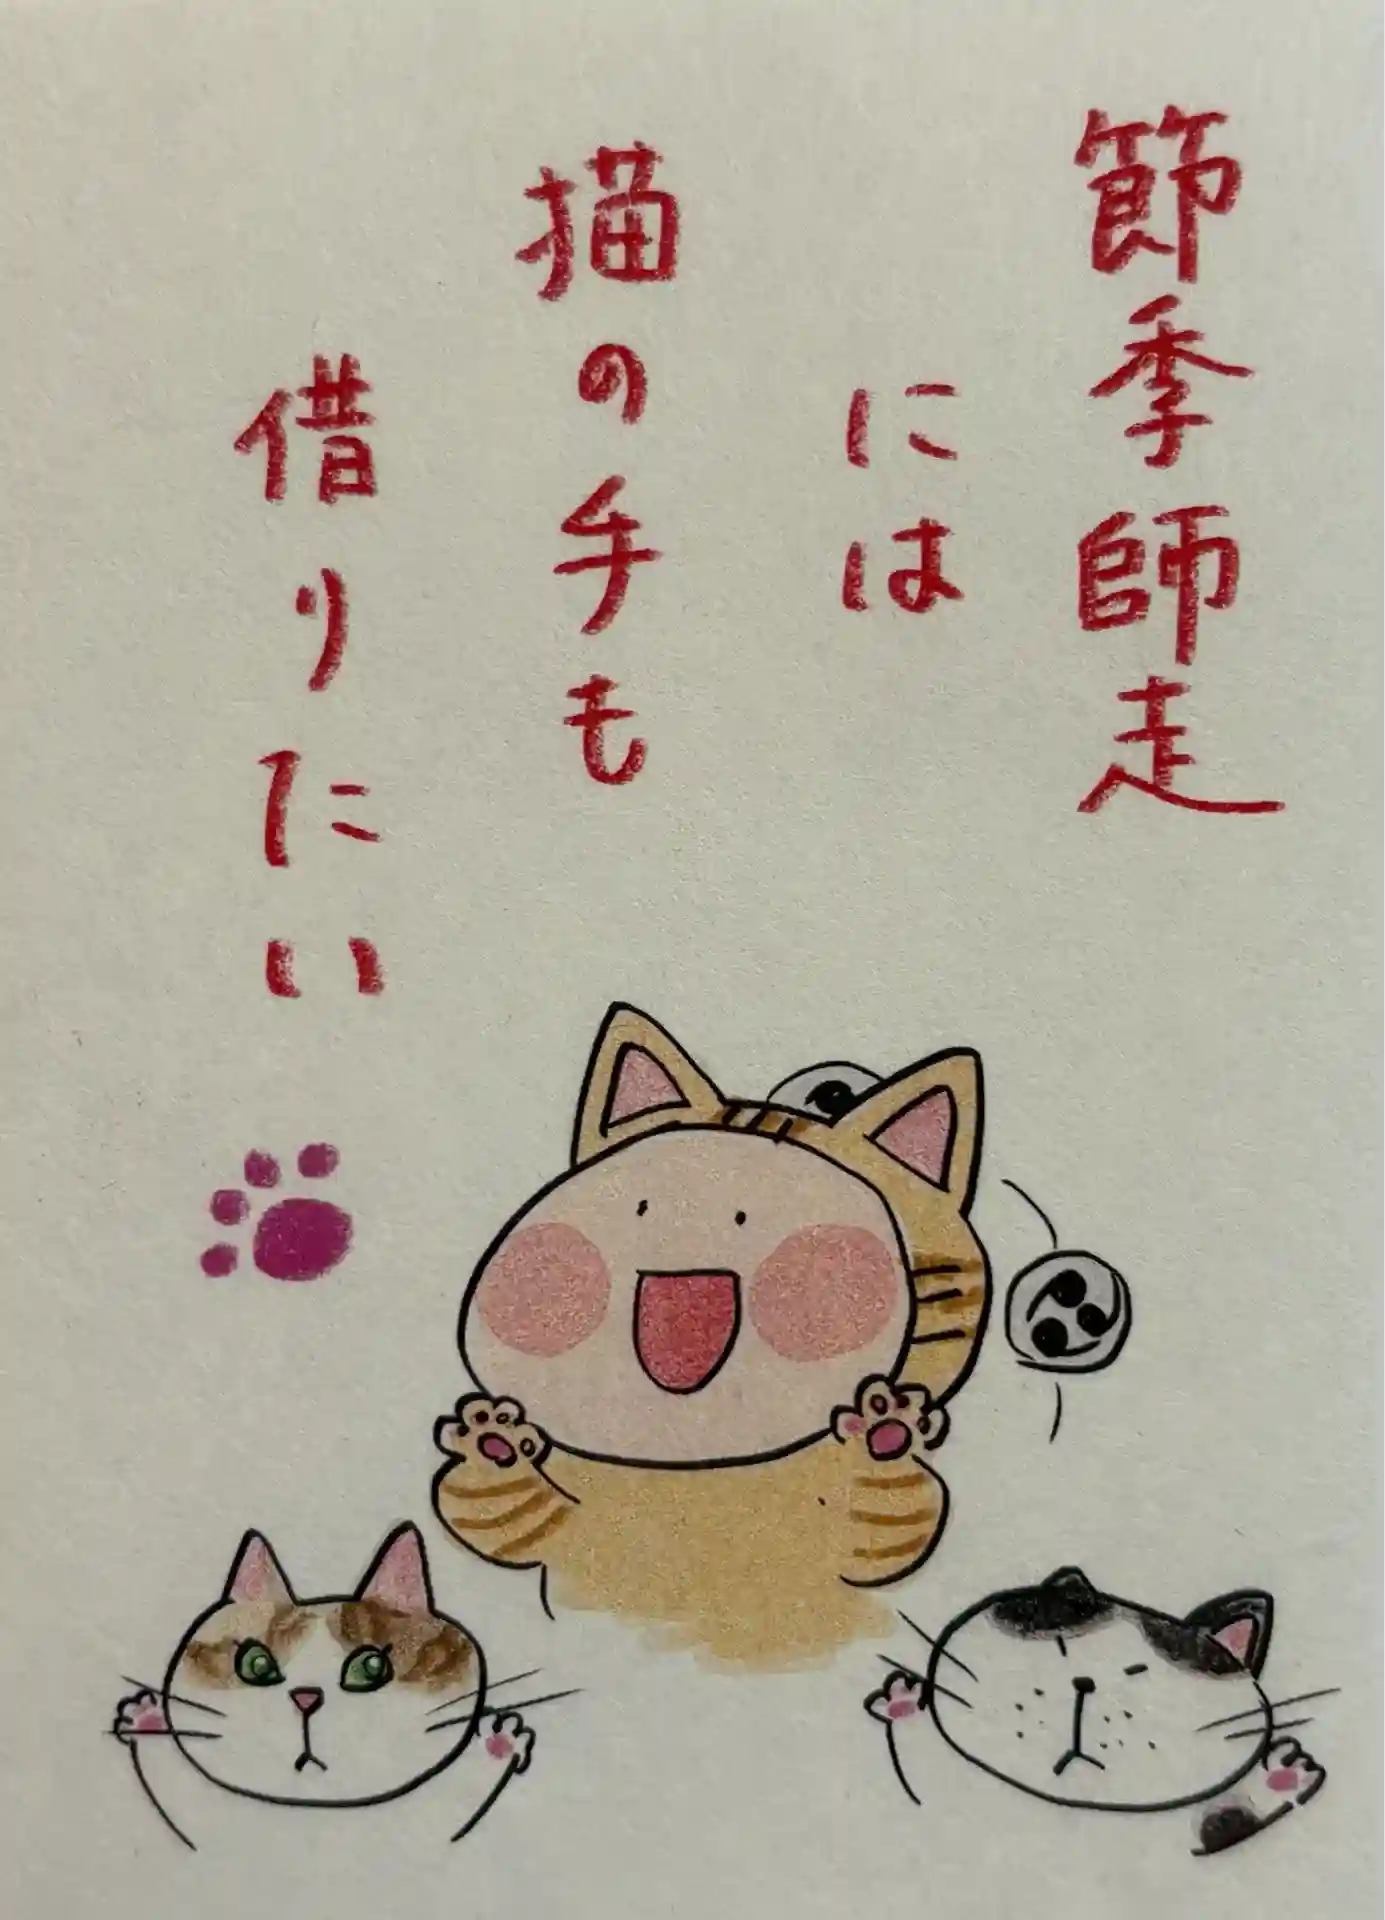 節季師走
には
猫の手も
借りたい